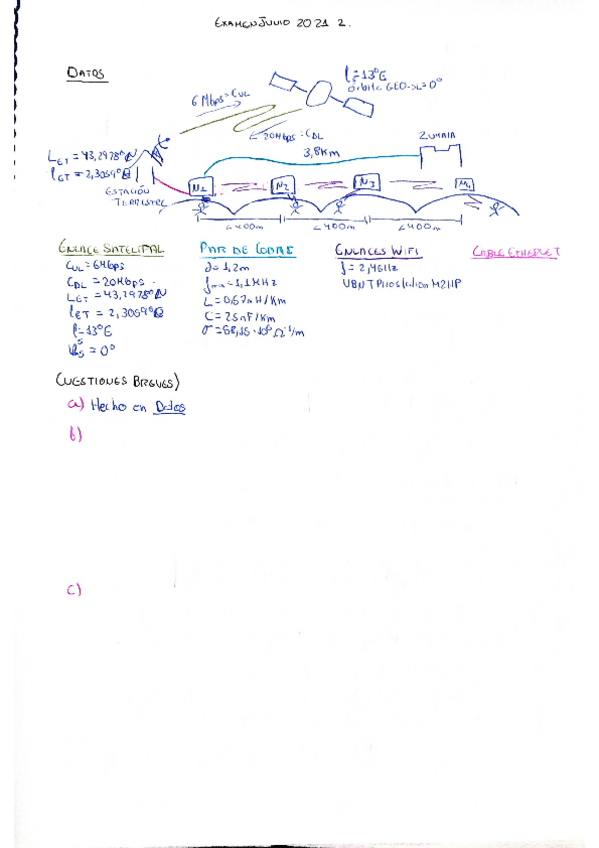 EXAMEN JULIO 2021 2.
DATOS
l=13°E
órbita GEO→i=0°
6 Mbps = CUL
20Mbps = CDL
ZUMAIA
3,8Km
LET = 43,2978°N
lET = 2,3059°O
ESTACIÓN
TERRESTRE
N1
N2
N3
N4
<400m
<400m
<400m
ENLACE SATELITAL
CUL = 6Mbps
CDL = 20Mbps
LET = 43,2978°N
lET = 2,3059°O
l = 13°E
= 0°
PAR DE COBRE
d = 1,2m
fmax = 1,1MHz
L = 0,67mH/Km
C = 25nF/Km
ENLACES WIFI
f = 2,4GHz
UBNT M2HP
CABLE ETHERNET
CUESTIONES BREVES)
a) Hecho en Datos
b)
c)